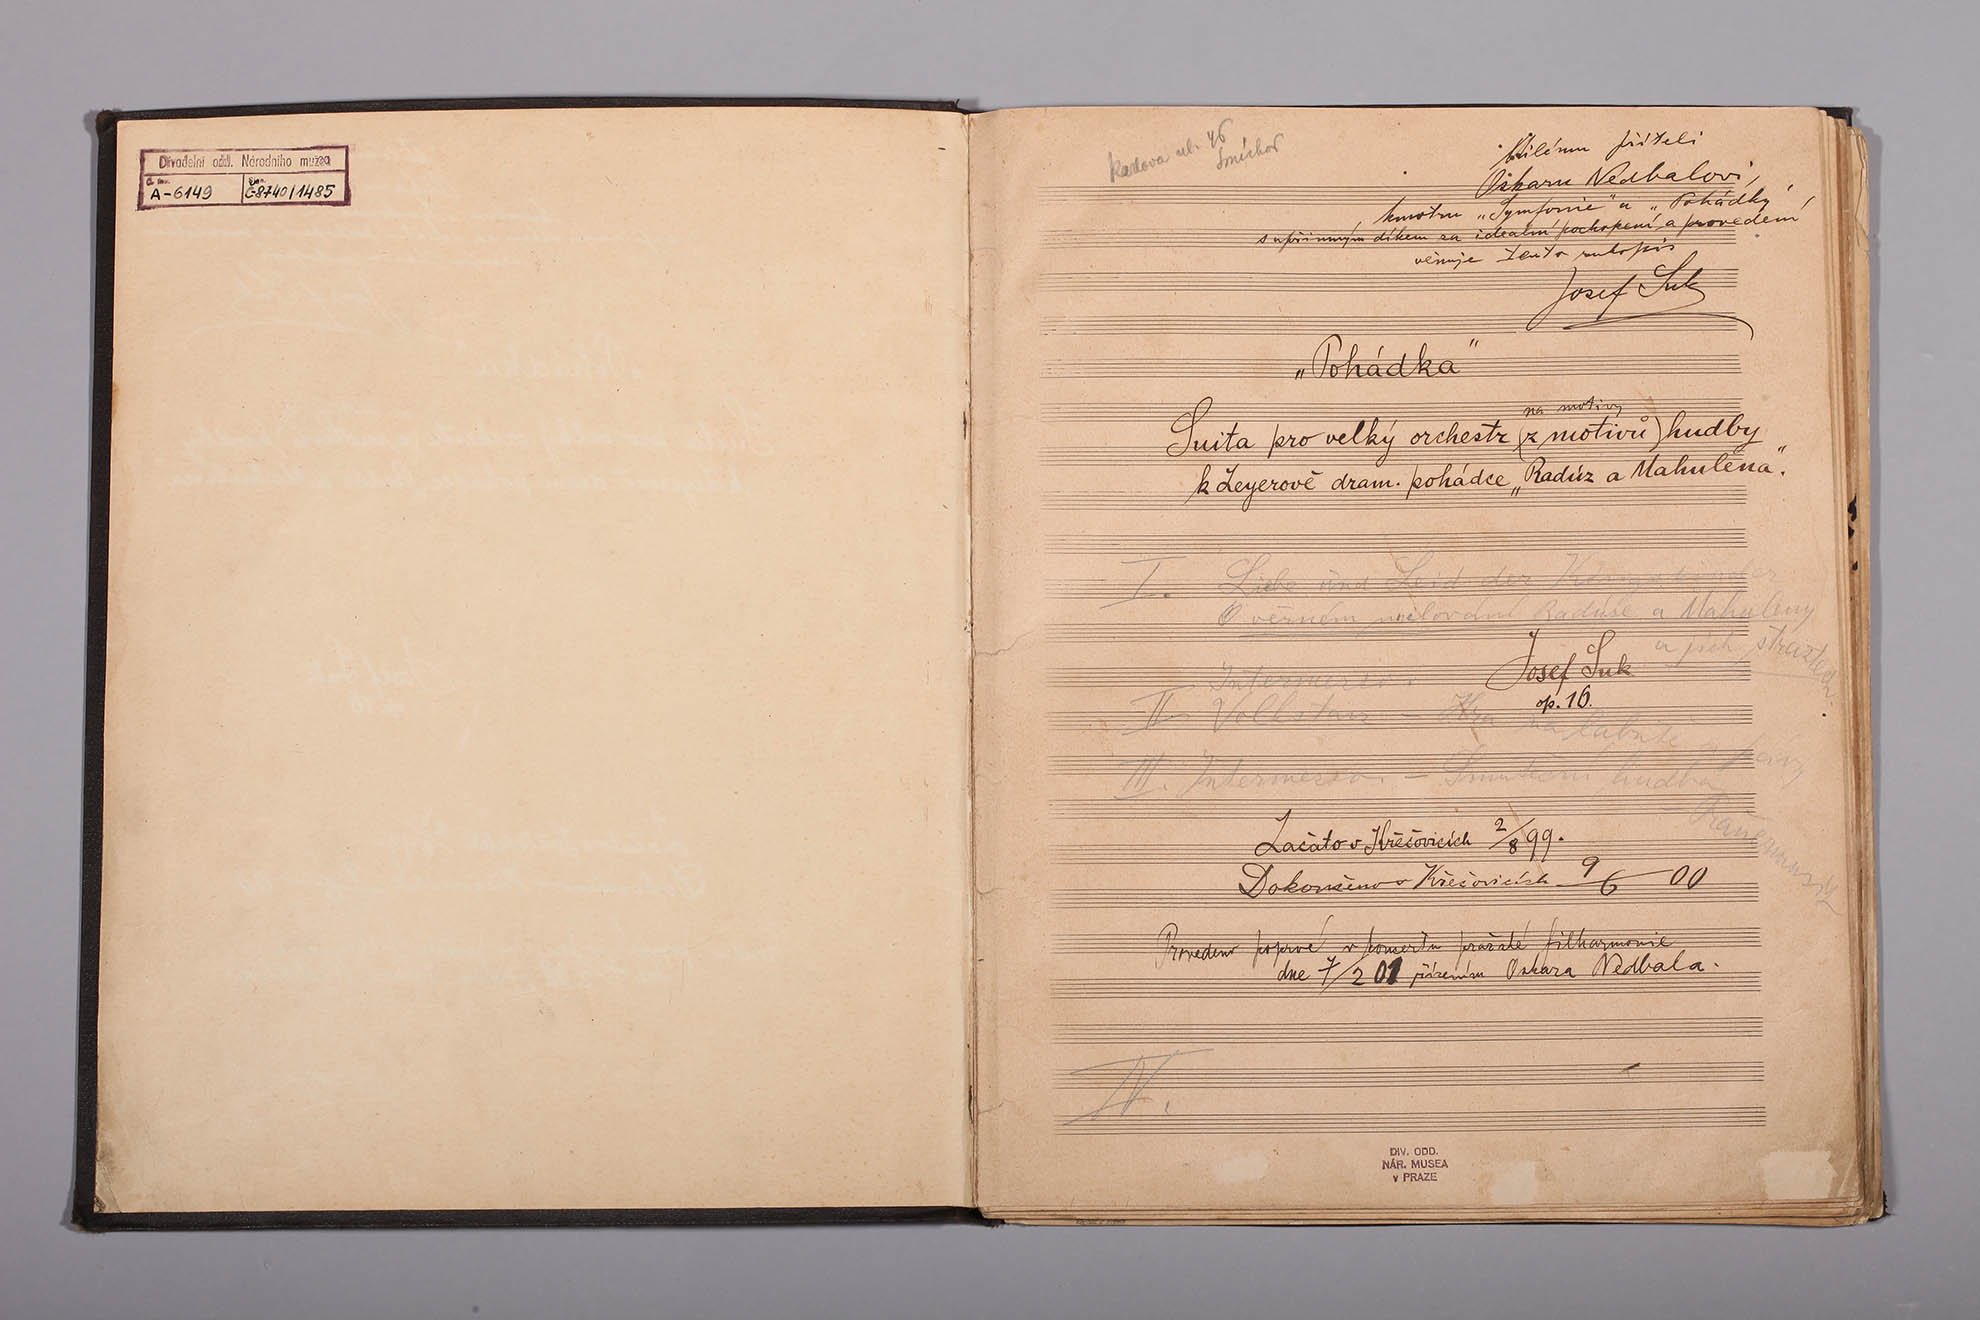 Divadelní odd. Národního muzea
Č. inv.
A-6149
Sign.
C8740/1485
46
Smíchov
Milému příteli
Oskaru Nedbalovi,
kmotru „Symfonie" a „Pohádky"
s upřímným díkem za ideální pochopení a provedení
věnuje tento rukopis
Josef Suk
„Pohádka"
na motivy
Suita pro velký orchestr (z motivů) hudby
k Zeyerově dram. pohádce „Radúz a Mahulena".
I. Liebe und Leid der Königskinder
O věrném milování Radúze a Mahuleny
a jich strastech.
Josef Suk
op. 16.
Intermezzo.
II. Volkstanz – Hra na labutě a pávy
III. Intermezzo. – Smuteční hudba
Začato v Křečovicích 2/8 99.
Dokončeno v Křečovicích 9/6 00
Provedeno poprvé v koncertu pražské filharmonie
dne 7/2 01 řízením Oskara Nedbala.
IV.
DIV. ODD.
NÁR. MUSEA
v PRAZE